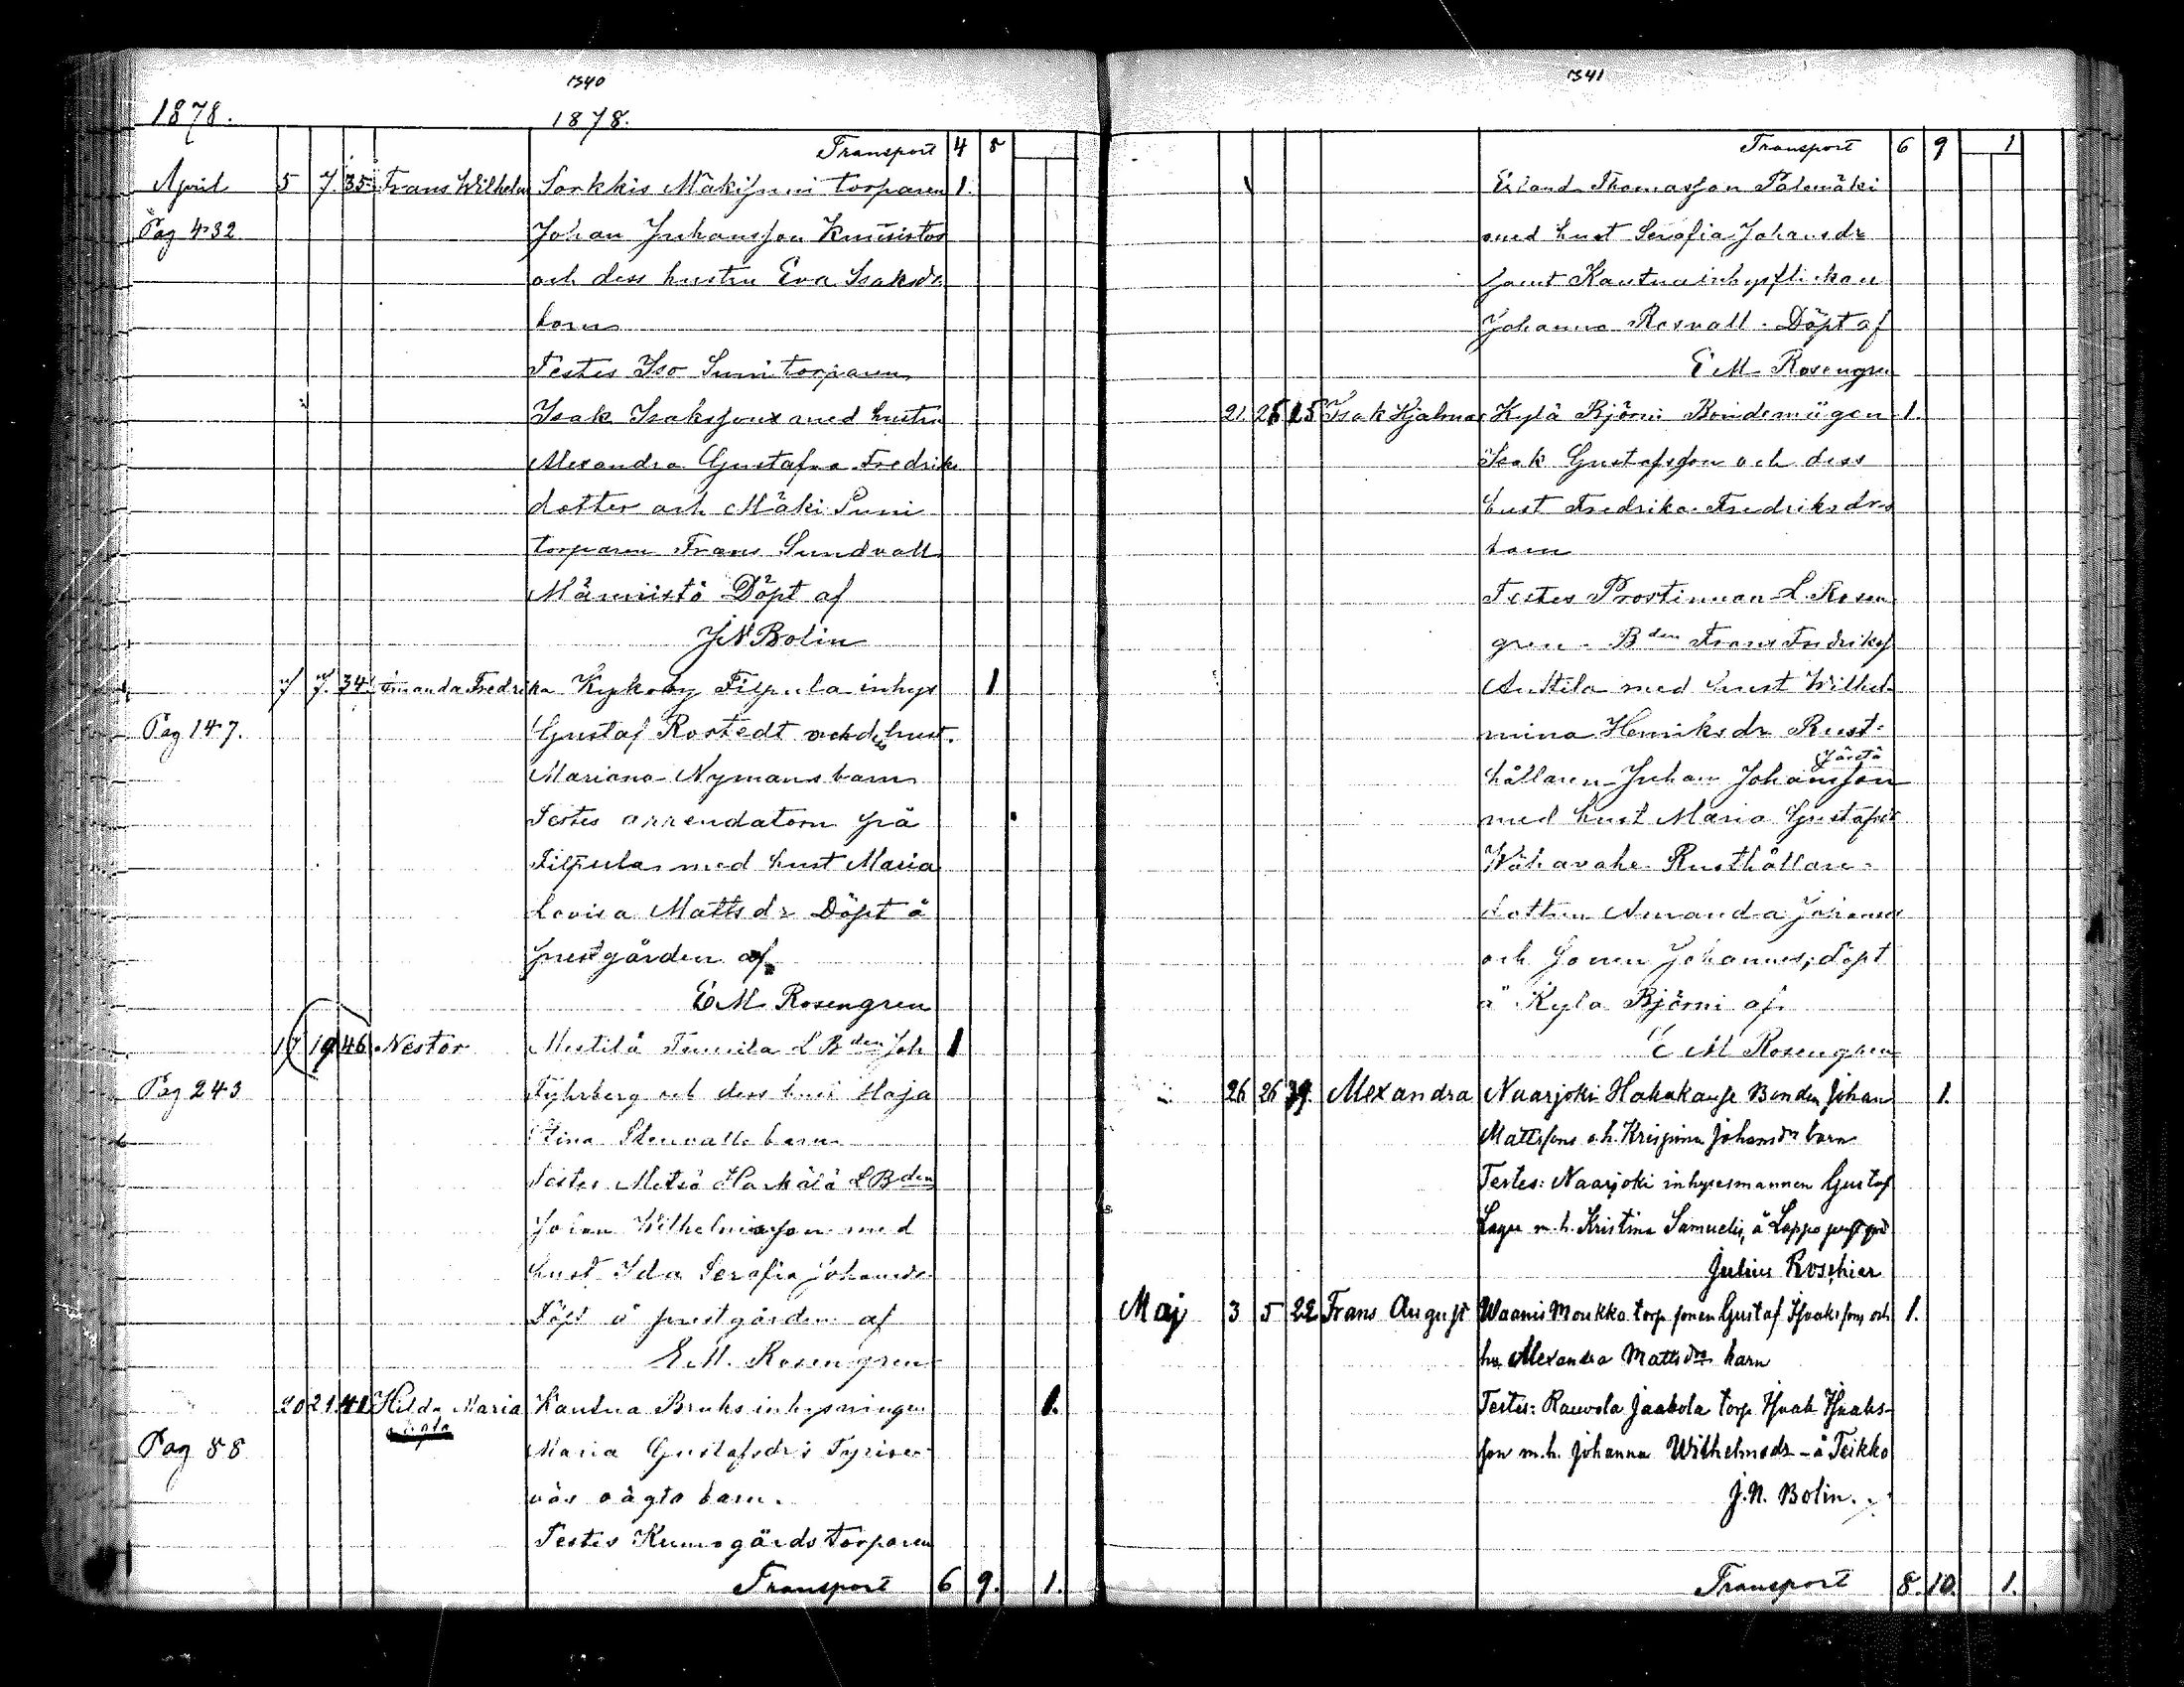 1340
1878.
1878.
Transport 4 8
April 5 7 35 Frans Wilhelm Sorkkis Mäkisuni torparen 1.
Pag 432 Johan Juhansson
och dess hustru Eva Isaksdr
barn
Testes Iso Suni torparen
Isak Isaksson med hustru
Alexandra Gustafva Fredriks
dotter och Mäki Suni
torparen Frans Sundvall
Männistö Döpt af
J N Bolin
7 7. 34. Amanda Fredrika Kyrkoby Filpula inhys 1
Pag 147. Gustaf Rostedt och des hust.
Mariana Nymans barn
Testes arrendatorn på
Filpula med hust Maria
Lovisa Mattsdr Döpt å
prestgården af
E M Rosengren
17 19 46 Nestor L Bden Joh 1
Pag 243 och dess hust Maja
Stina Stenvalls barn
Testes LBden
Johan Wilhelmsson med
hust Ida Serafia Johansdr
Döpt å prestgården af
E.M. Rosengren
20 21 41 Hilda Maria Kautua Bruks 1.
oägta
Pag 88 Maria Gustafsdrs
oägta barn.
Testes torparen
Transport 6 9. 1.
1341
Transport 6 9 1
Erland Thomasson Palomäki
med hust Serafia Johansdr
samt Kautua inhysflickan
Johanna Rosvall. Döpt af
E M Rosengren
21. 25 Isak Hjalmar Kylä Björni Bondemågen 1.
Isak Gustafsson och dess
hust Fredrika Fredriksdrs
barn
Testes Prostinnan L. Rosen
gren. Bden Frans Fredriks
Anttila med hust Wilhel-
mina Henriksdr Rust-
hållaren Juhan Johansson
med hust Maria Gustafsdr
Wähävahe. Rusthållare-
dottren Amanda Johansdr
och sonen Johannes, döpt
å Kylä Björni af
E M Rosengren
26 26 39. Alexandra Naarjoki Hakakause Bonden Johan 1.
Mattssons o.h. Krispina Johansdr barn
Testes: Naarjoki inhysesmannen Gustaf
m.h. Kristina Samuelis, å Lappo
Julius Roschier
Maj 3 5 22 Frans August torp. sonen Gustaf Isaksons och 1.
hu Alexandra Mattsdrs barn
Testes: Jaakola torp Isak Isaks-
son m.h. Johanna Wilhelmsdr - å Teikko
J.N. Bolin.
Transport 8. 10. 1.